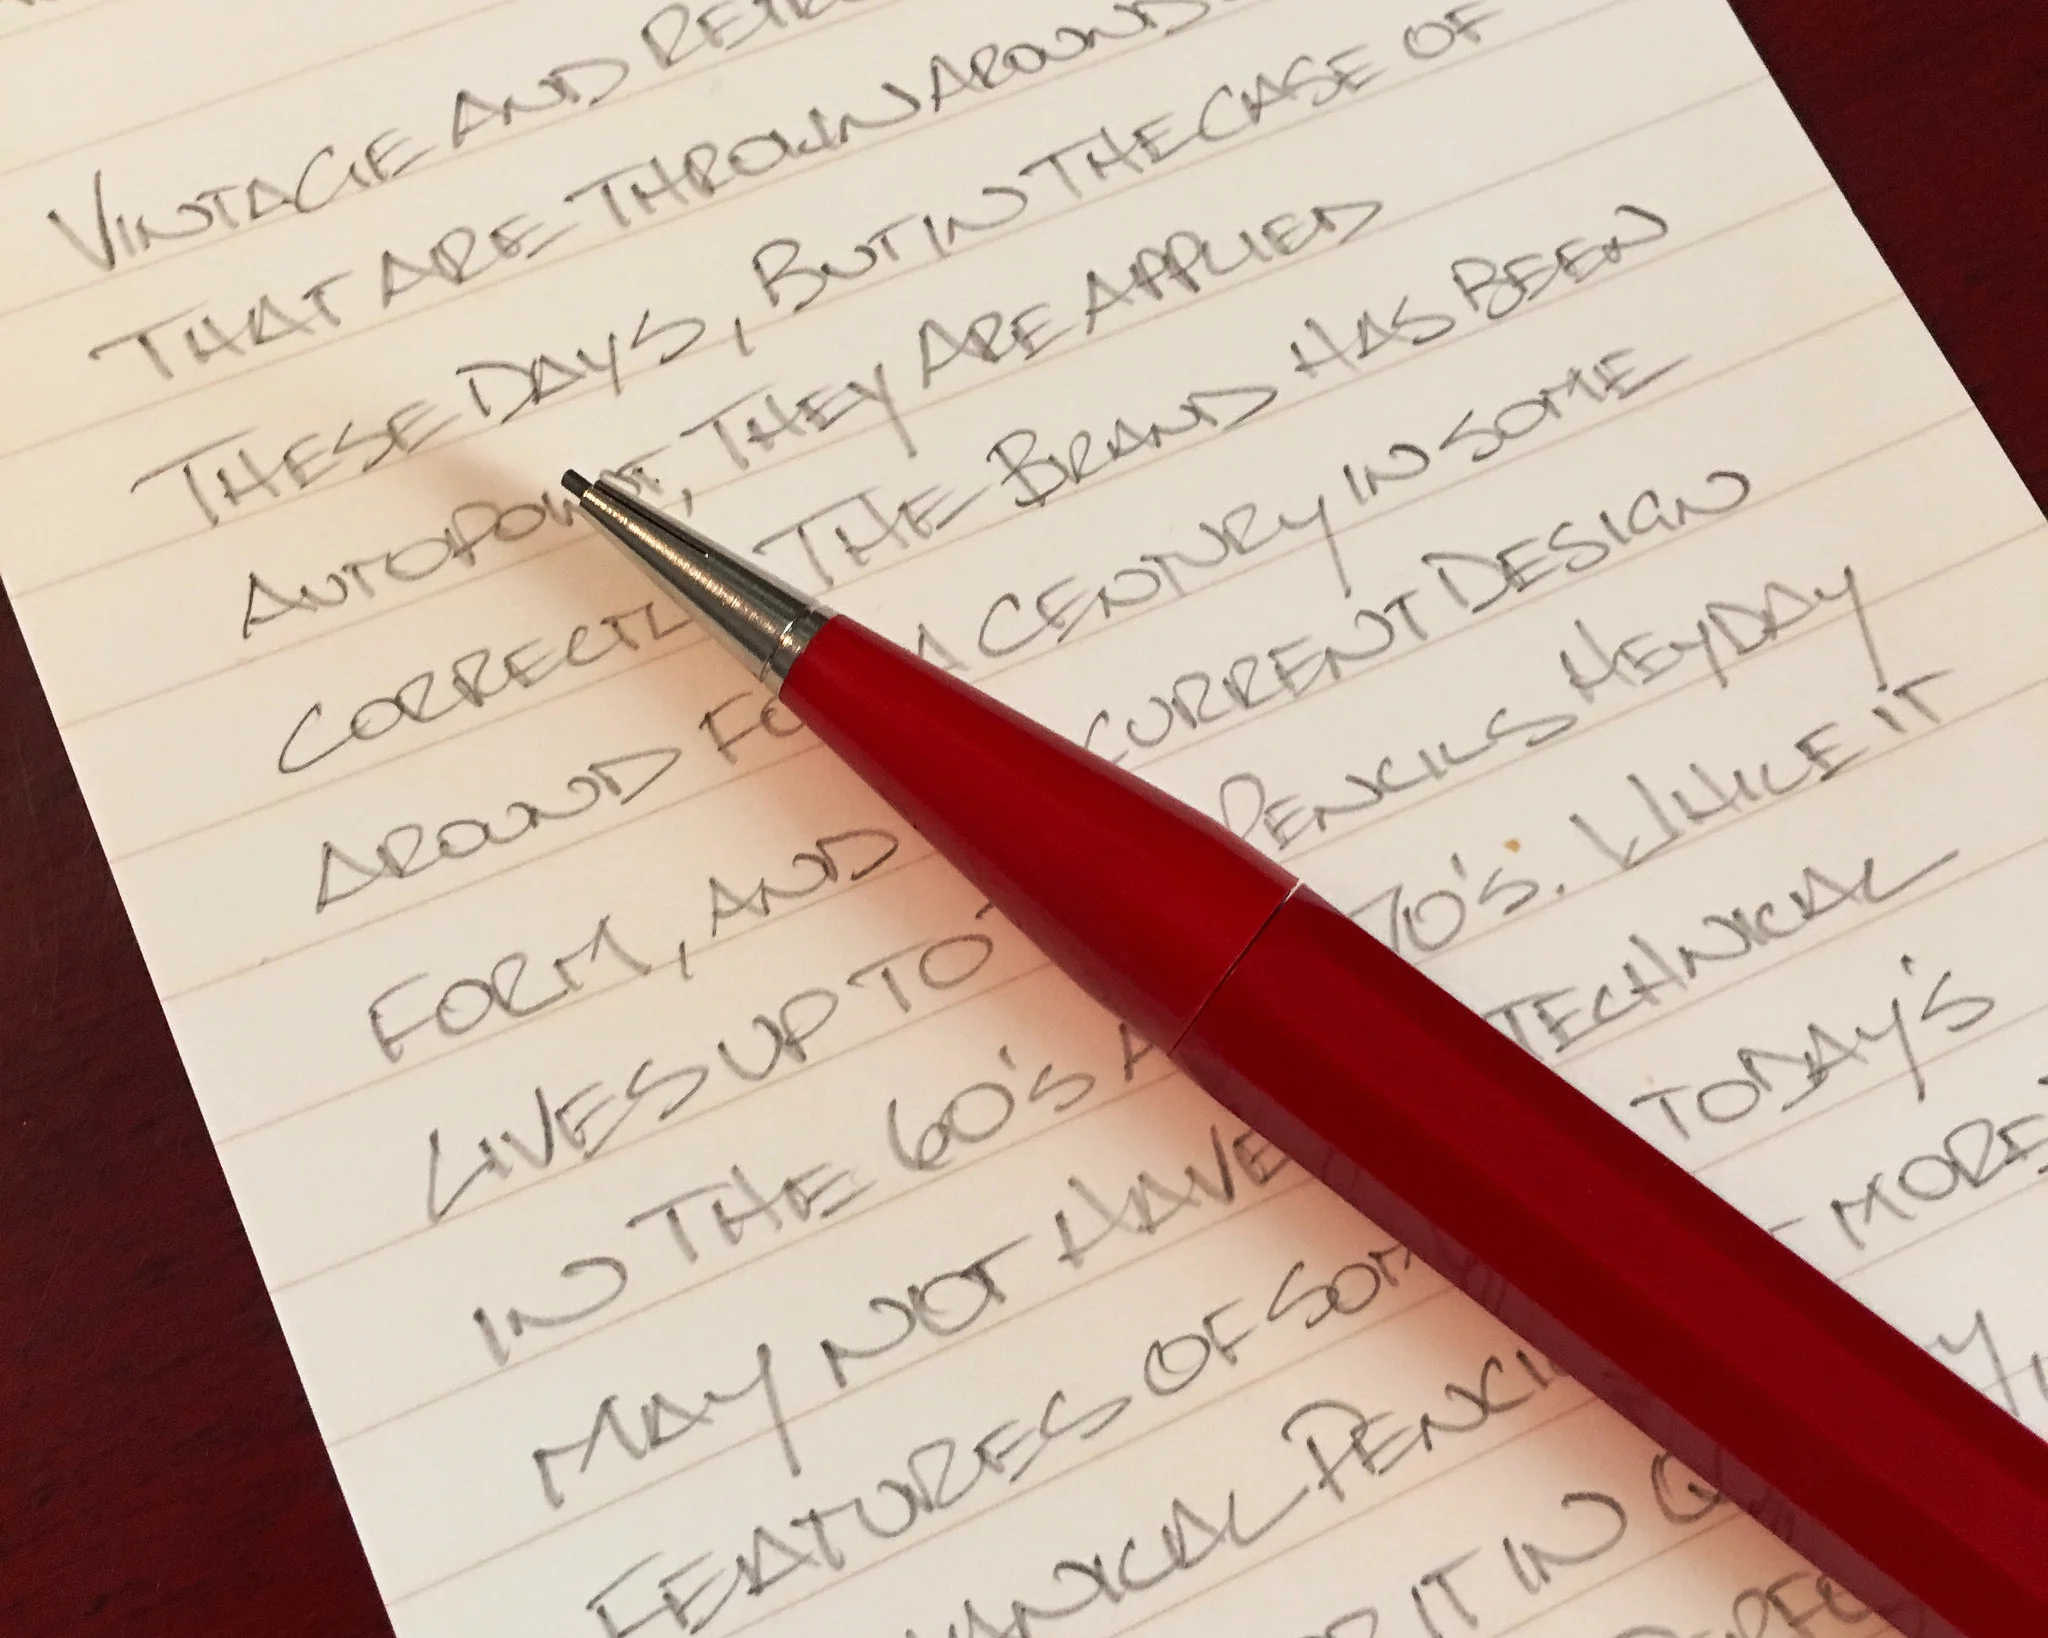 VINTAGE AND
THAT ARE THROWN AROUND
THESE DAYS, BUT IN THE CASE OF
AUTOPOINT, THEY ARE APPLIED
CORRECTLY THE BRAND HAS BEEN
AROUND FO A CENTURY IN SOME
FORM, AND CURRENT DESIGN
LIVES UP TO PENCILS HEYDAY
IN THE 60'S A 70'S. WHILE IT
MAY NOT HAVE TECHNICAL
FEATURES OF SOM TODAY'S
PENCIL MORE
IT IN